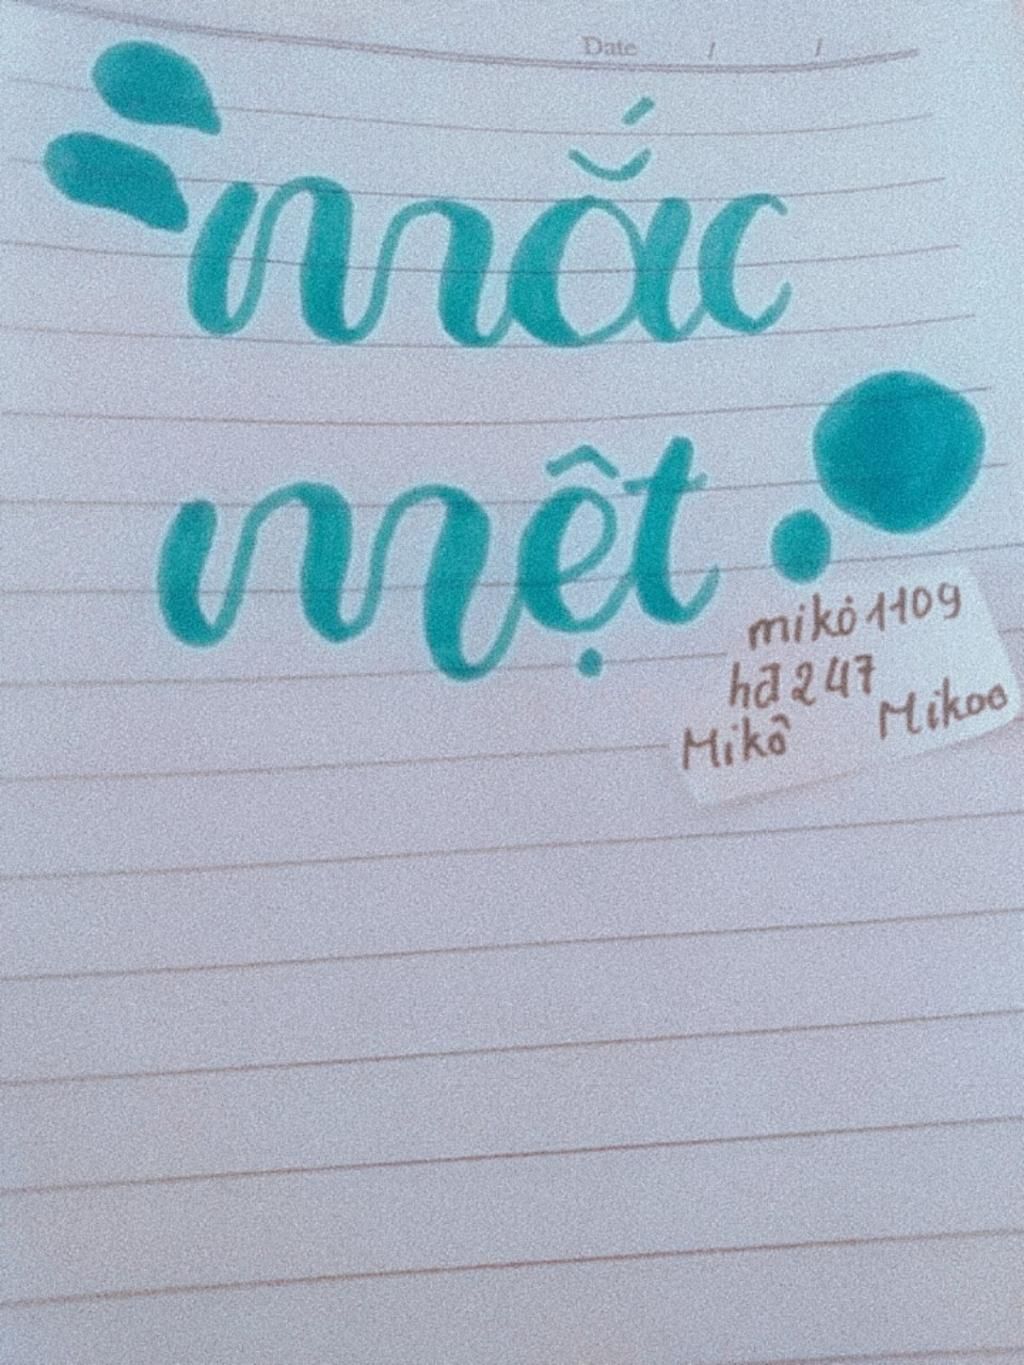 Date / /
mắc
mệt
mikó1109
hđ247
Mikô Mikoo